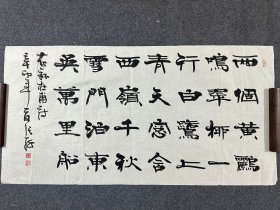 兩個黄鸝
鳴翠柳一
行白鷺上
青天窗含
西嶺千秋
雪門泊東
吳萬里船
杜甫詩
辛卯年